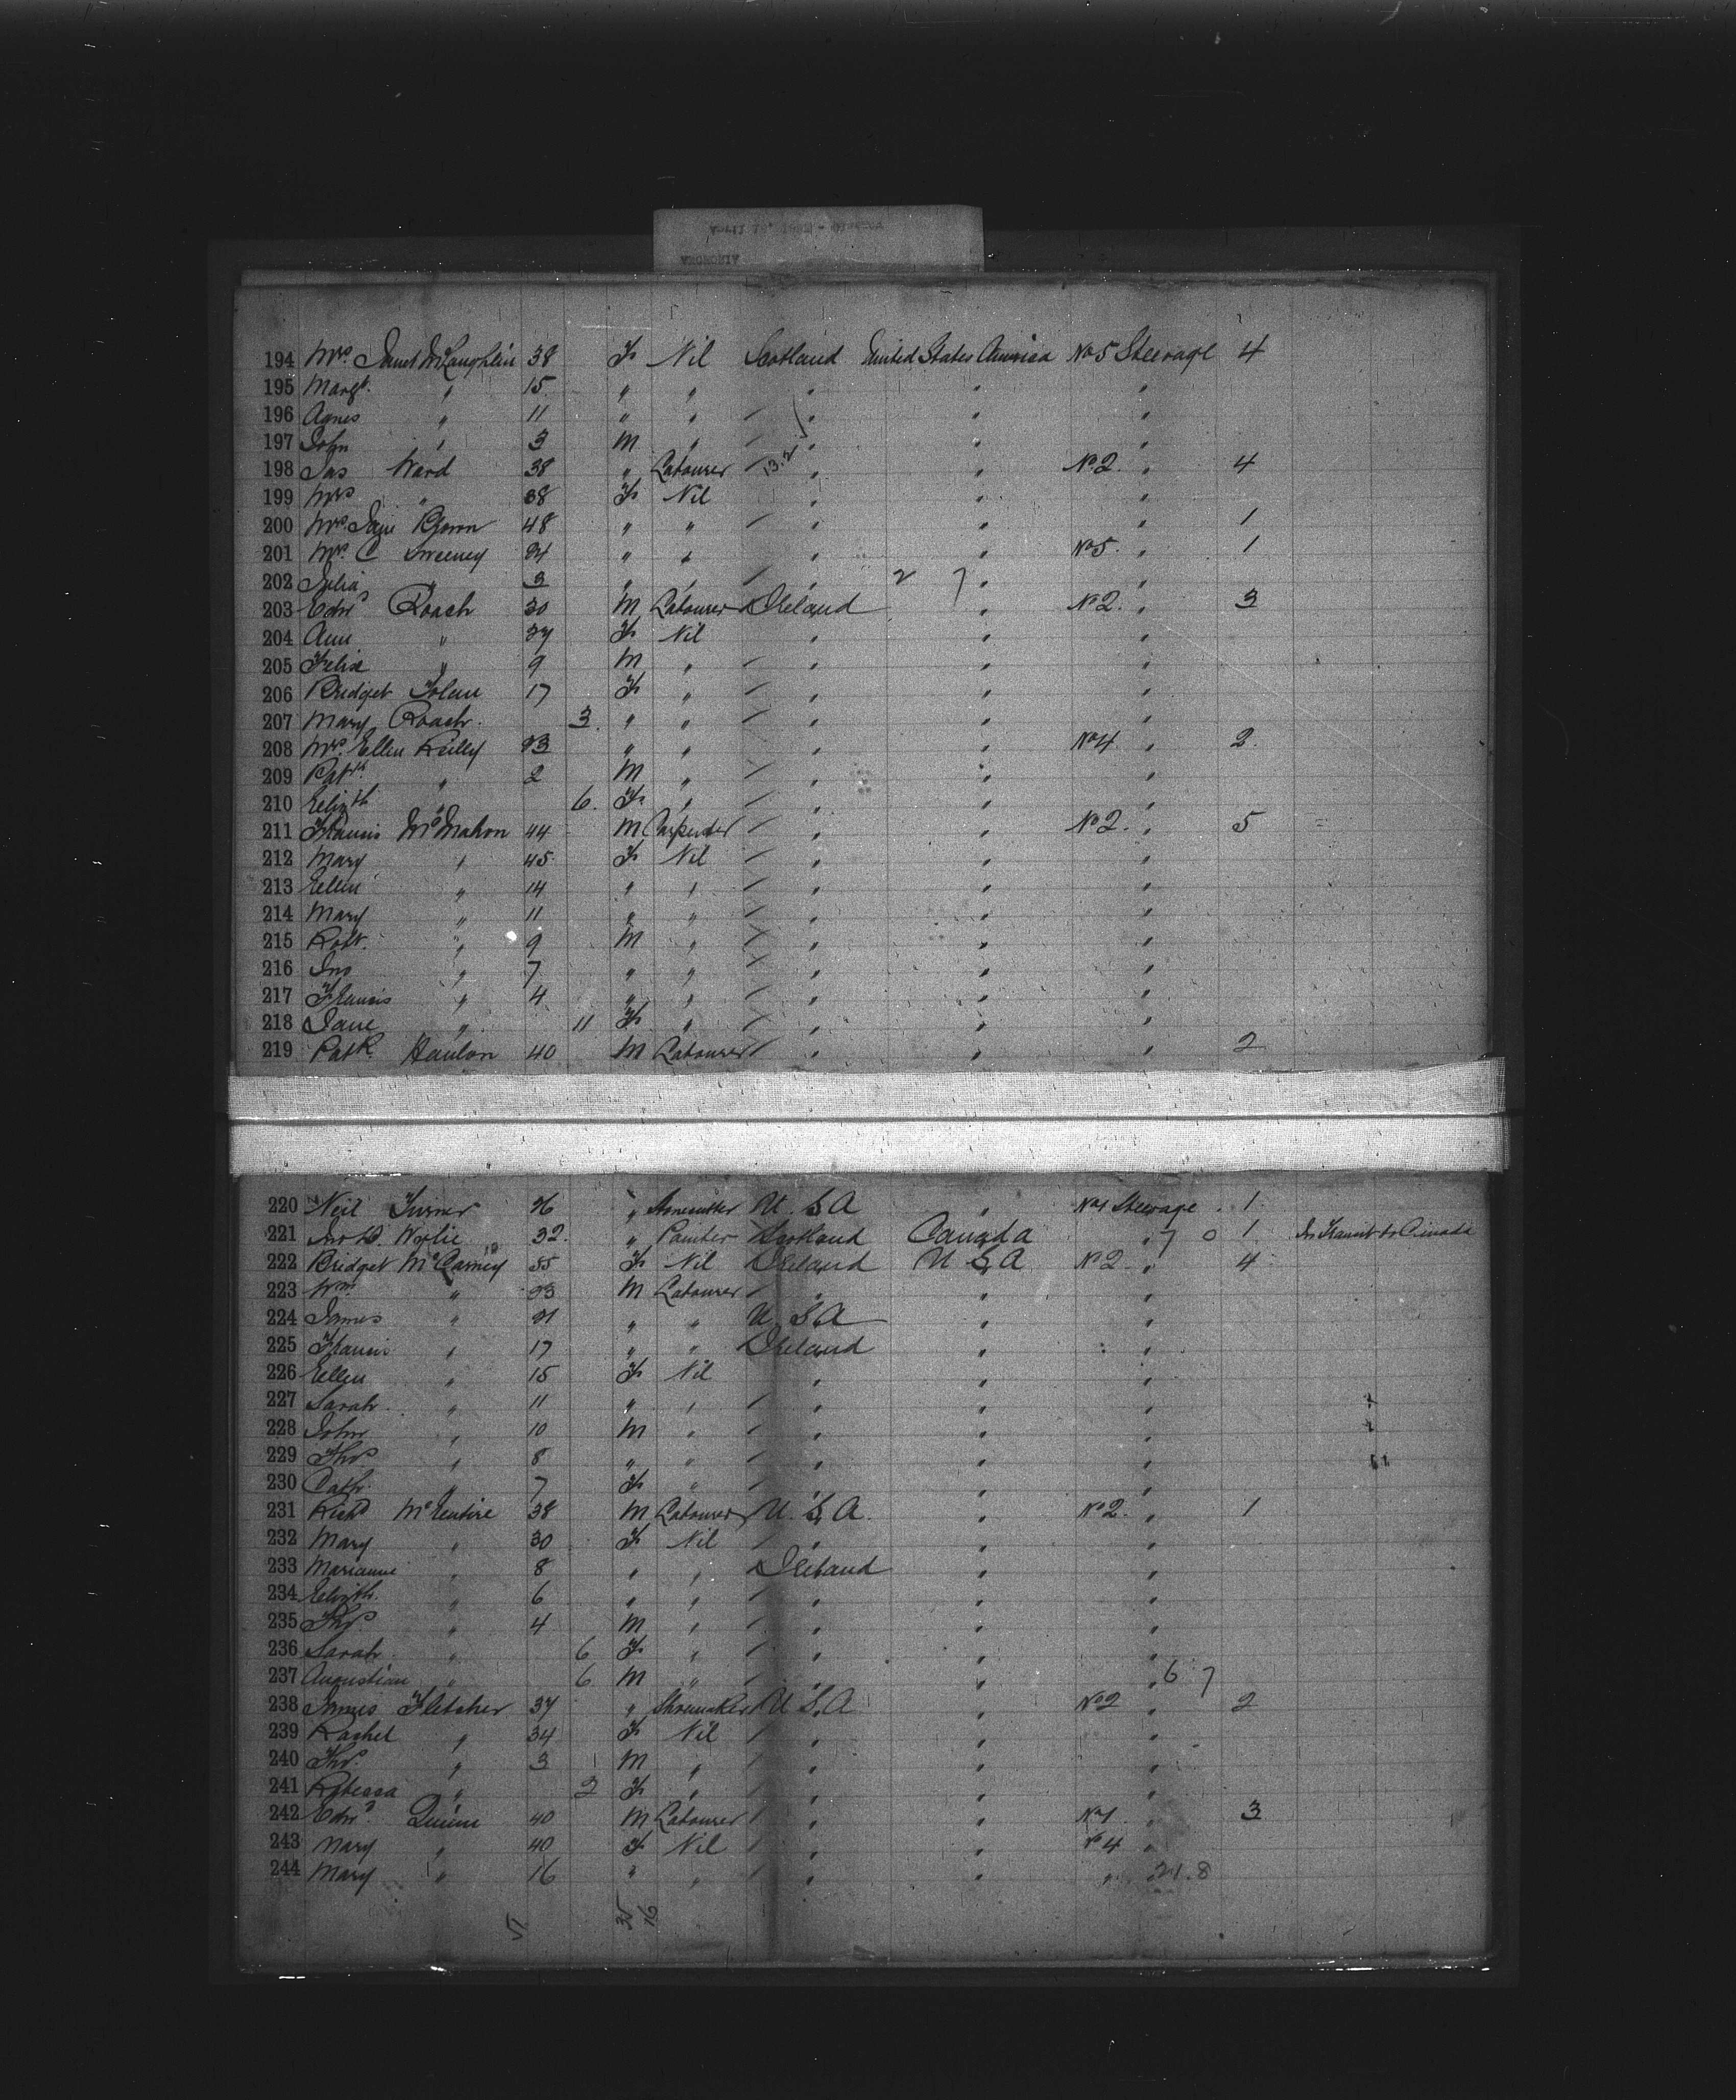 194 Mrs Janet McLaughlin 38 F Nil Scotland United States America No 5 Steerage 4
195 Margt. " 15 " " " " "
196 Agnes " 11 " " " " "
197 John " 3 M " " " "
198 Jas Ward 38 " Labourer 13.2 " " No 2. " 4
199 Mrs " 38 F Nil " " "
200 Mrs Jane 48 " " " " " 1
201 Mrs C Sweeney 24 " " " " No 5. " 1
202 Julia " 3 " " " 2 7 " "
203 Edwd Roach 30 M Labourer Ireland " No 2. " 3
204 Ann " 27 F Nil " " "
205 Felix " 9 M " " " "
206 Bridget 17 F " " " "
207 Mary Roach. 3. " " " " "
208 Mrs Ellen Reilly 23 " " " " No 4 " 2.
209 Patk " 2 M " " " "
210 Elizth " 6. F " " " "
211 Francis McMahon 44 M Carpenter " " No 2. " 5
212 Mary " 45 F Nil " " "
213 Ellen " 14 " " " " "
214 Mary " 11 " " " " "
215 Robt. " 9 M " " " "
216 Jno " 7 " " " " "
217 Francis " 4 " " " " "
218 Jane " 11 F " " " "
219 Patk Hanlon 40 M Labourer " " " 2
220 Neil Turner 26 " Stonecutter U.S.A " No 1 Steerage 1
221 Jno Wylie 32. " Painter Scotland Canada " 7 0 1 In Transit to Canada
222 Bridget 55 F Nil Ireland U S A No 2 " 4
223 Wm " 23 M Labourer " " "
224 James " 21 " " U.S.A " "
225 Francis " 17 " " Ireland " "
226 Ellen " 15 F Nil " " "
227 Sarah " 11 " " " " "
228 John " 10 M " " " "
229 Thos " 8 " " " " "
230 Cath. " 7 F " " " "
231 Richd McEntire 38 M Labourer U.S.A. " No 2. " 1
232 Mary " 30 F Nil " " "
233 Marianne " 8 " " Ireland " "
234 Elizth. " 6 " " " " "
235 Thos " 4 M " " " "
236 Sarah " 6 F " " " "
237 Augustian " 6 M " " " " 6 7
238 James Fletcher 37 " Shoemaker U.S.A " No 2 " 2
239 Rachel " 34 F Nil " " "
240 Thos. " 3 M " " " "
241 Rebecca " 2 F " " " "
242 Edwd Quinn 40 M Labourer " " No 1 " 3
243 Mary " 40 F Nil " " No 4 "
244 Mary " 16 " " " " " 21.8
51 35 16